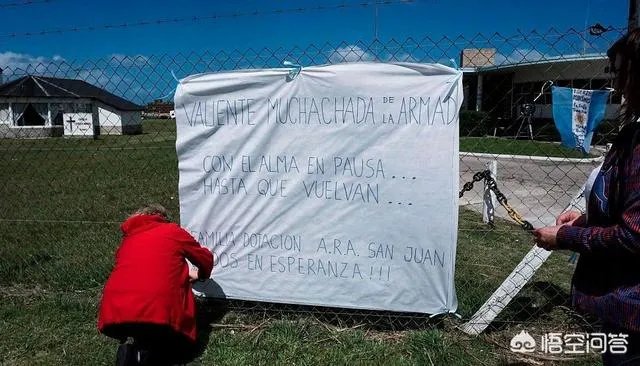 VALIENTE MUCHACHADA DE LA ARMAD
CON EL ALMA EN PAUSA....
HASTA QUE VUELVAN....
FAMILIA DOTACION A.R.A. SAN JUAN
DOS EN ESPERANZA!!!
悟空问答